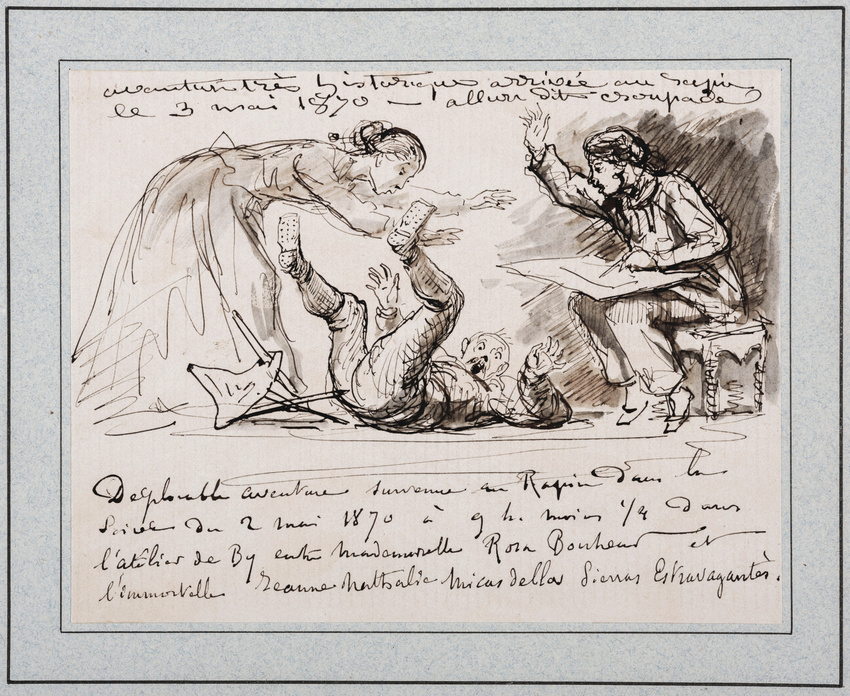 aventure très historique arrivée au Rapin
le 3 mai 1870 — dite croupade
Déplorable aventure survenue au Rapin dans la
Soirée du 2 mai 1870 à 9 h. moins 1/4 dans
l'atelier de By entre mademoiselle Rosa Bonheur et
l'immortelle Jeanne Nathalie Micas della Sierras Estravagantès.